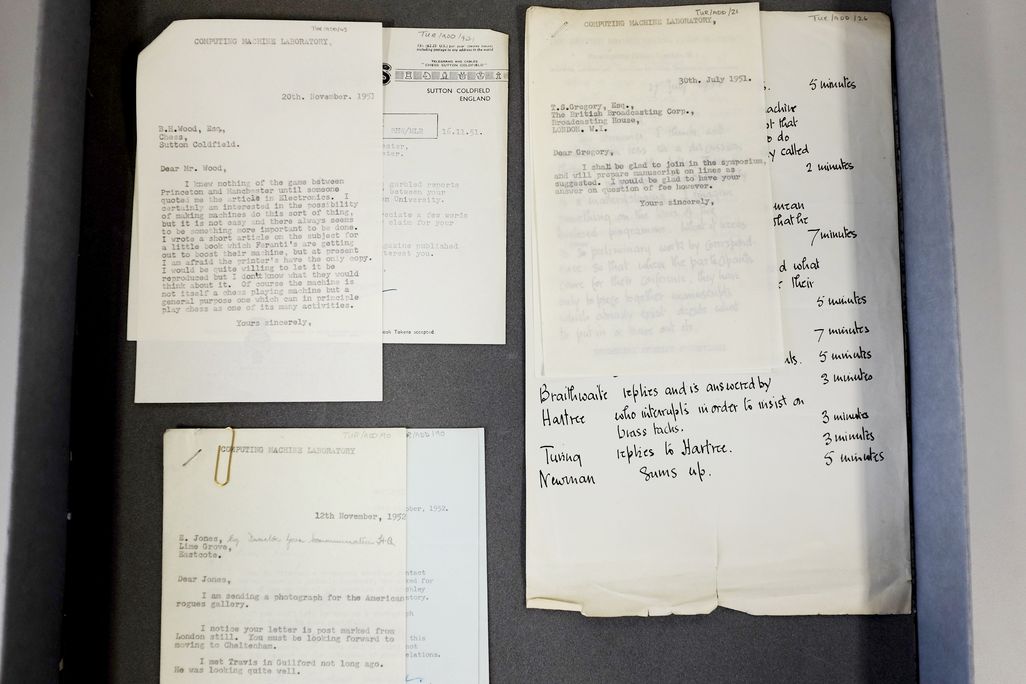 TUR/ADD/43
COMPUTING MACHINE LABORATORY,
20th. November. 1951
B.H.Wood, Esq.,
Chess,
Sutton Coldfield.
Dear Mr. Wood,
I knew nothing of the game between
Princeton and Manchester until someone
quoted me the article in Electronics. I
certainly am interested in the possibility
of making machines do this sort of thing,
but it is not easy and there always seems
to be something more important to be done.
I wrote a short article on the subject for
a little book which Feranti's are getting
out to boost their machine, but at present
I am afraid the printer's have the only copy.
I would be quite willing to let it be
reproduced but I don't know what they would
think about it. Of course the machine is
not itself a chess playing machine but a
general purpose one which can in principle
play chess as one of its many activities.
Yours sincerely,
TUR/ADD/42
including postage to any address in the world
TELEGRAMS AND CABLES
"CHESS SUTTON COLDFIELD"
S
SUTTON COLDFIELD
ENGLAND
16.11.51.
garbled reports
between your
University.
a few words
claim for your
published
terest you.
Book Tokens accepted
TUR/ADD/21
COMPUTING MACHINE LABORATORY,
30th. July 1951.
T.S.Gregory, Esq.,
The British Broadcasting Corp.,
Broadcasting House,
LONDON. W.1.
Dear Gregory,
I shall be glad to join in the symposium,
and will prepare manuscript on lines as
suggested. I would be glad to have your
answer on question of fee however.
Yours sincerely,
TUR/ADD/26
5 minutes
machine
that
to do
called
2 minutes
mean
that he
7 minutes
what
their
5 minutes
7 minutes
5 minutes
3 minutes
Braithwaite replies and is answered by
Hartree who interrupts in order to insist on
brass tacks.
3 minutes
Turing replies to Hartree.
3 minutes
Newman Sums up.
5 minutes
TUR/ADD/90
COMPUTING MACHINE LABORATORY
12th November, 1952
E. Jones,
Lime Grove,
Eastcote.
Dear Jones,
I am sending a photograph for the American
rogues gallery.
I notice your letter is post marked from
London still. You must be looking forward to
moving to Cheltenham.
I met Travis in Guilford not long ago.
He was looking quite well.
1952.
for
story.
this
not